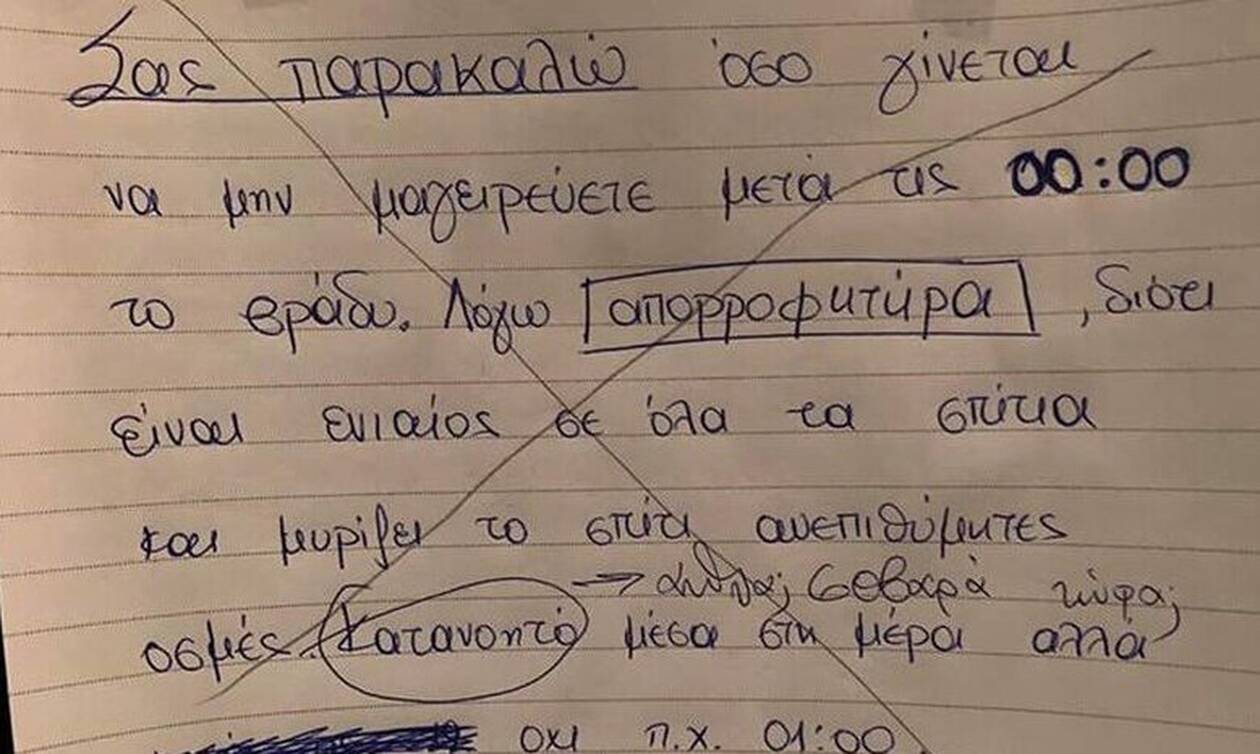 Σας παρακαλώ όσο γίνεται
να μην μαγειρεύετε μετά τις 00:00
το βράδυ. Λόγω απορροφητήρα, διότι
είναι ενιαίος σε όλα τα σπίτια
και μυρίζει το σπίτι ανεπιθύμητες
→ αλήθεια; Σοβαρά τώρα;
οσμές. Κατανοητό μέσα στη μέρα αλλά
οχι π.χ. 01:00